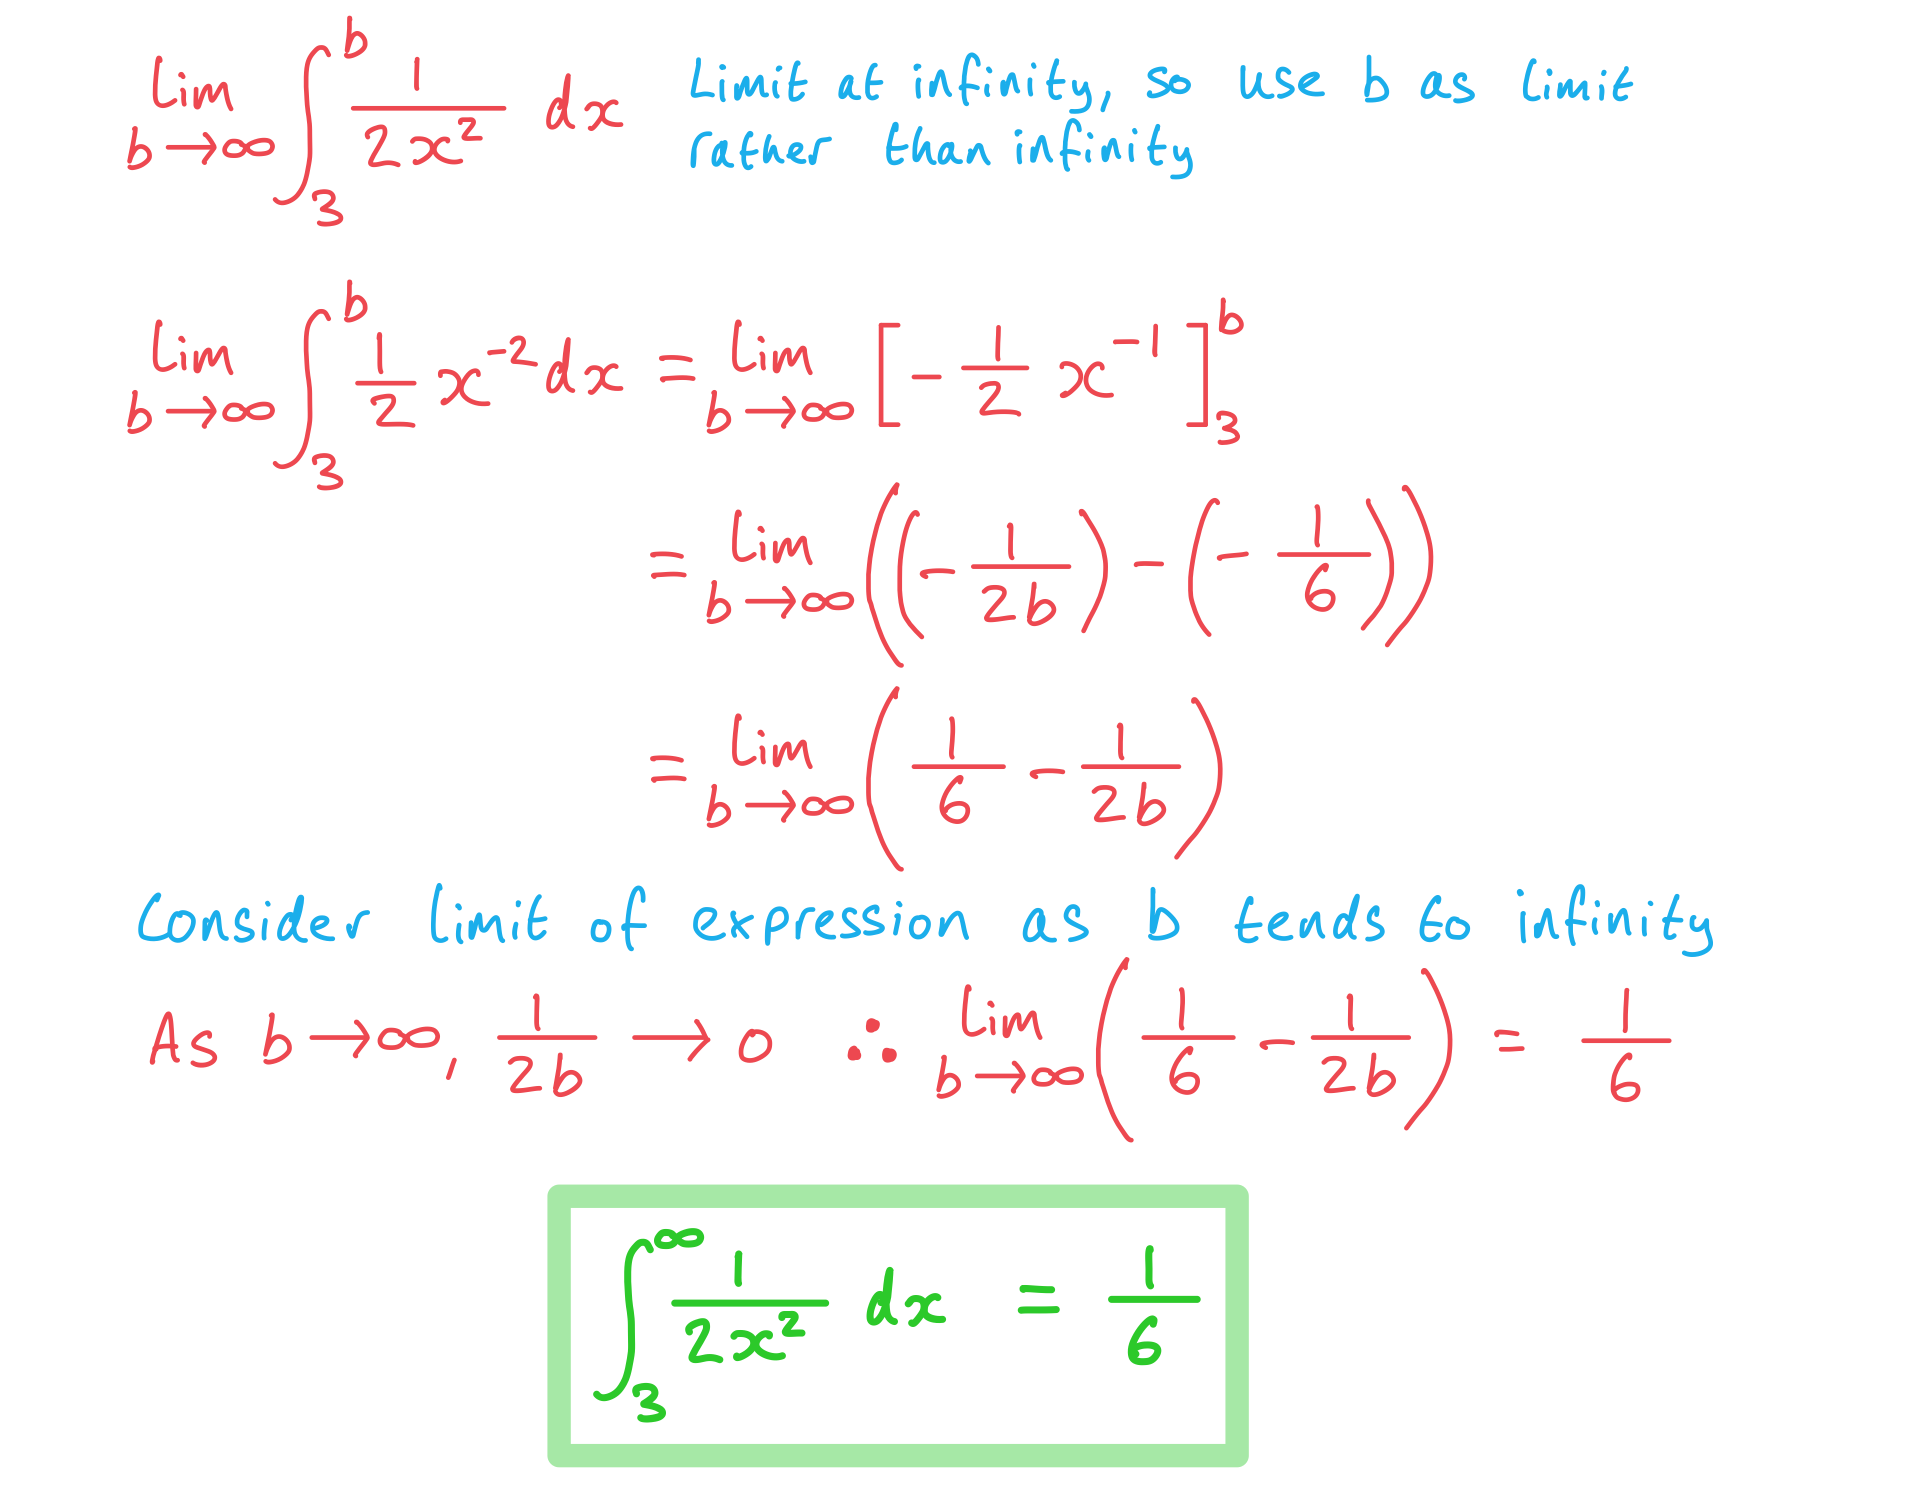 lim b→∞ ∫₃ᵇ 1/(2x²) dx Limit at infinity, so use b as limit
rather than infinity
lim b→∞ ∫₃ᵇ 1/2 x⁻² dx = lim b→∞ [-1/2 x⁻¹]₃ᵇ
= lim b→∞ ((-1/(2b)) - (-1/6))
= lim b→∞ (1/6 - 1/(2b))
Consider limit of expression as b tends to infinity
As b→∞, 1/(2b) → 0 ∴ lim b→∞ (1/6 - 1/(2b)) = 1/6
∫₃^∞ 1/(2x²) dx = 1/6